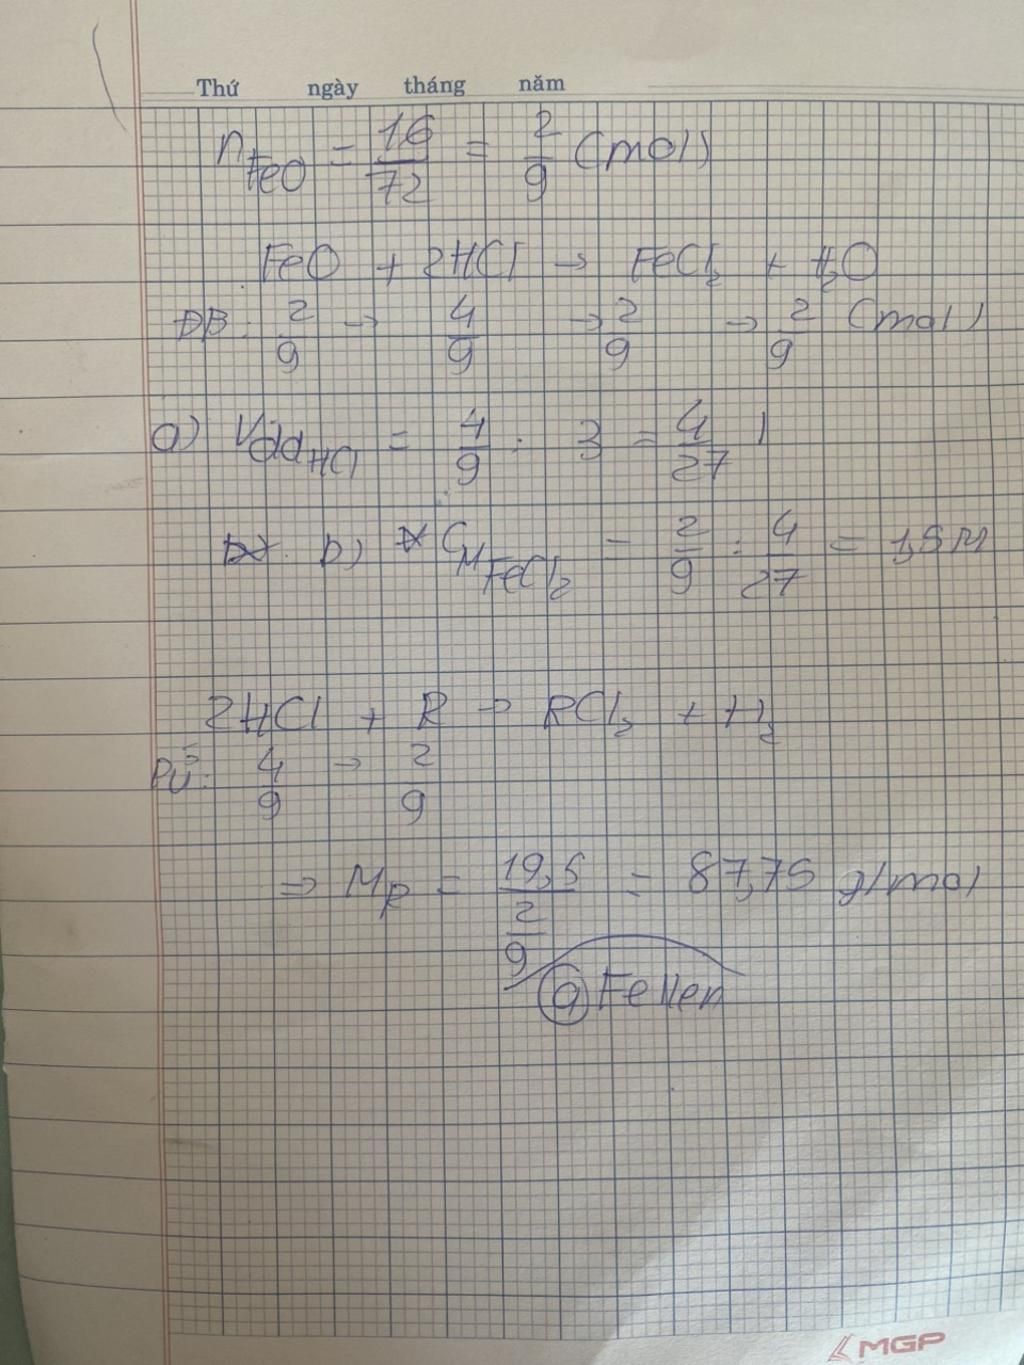 Thứ ngày tháng năm
n_FeO = 16/72 = 2/9 (mol)
FeO + 2HCl → FeCl₂ + H₂O
ĐB: 2/9 → 4/9 → 2/9 → 2/9 (mol)
a) Vdd_HCl = 4/9 : 3 = 4/27 l
b) C_M FeCl₂ = 2/9 : 4/27 = 1,5M
2HCl + R → RCl₂ + H₂
PỨ: 4/9 → 2/9
⇒ M_R = 19,5 / (2/9) = 87,75 g/mol
@Fellen
MGP